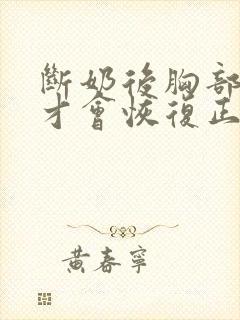 斷奶後胸部
才會恢復正
黃春寧